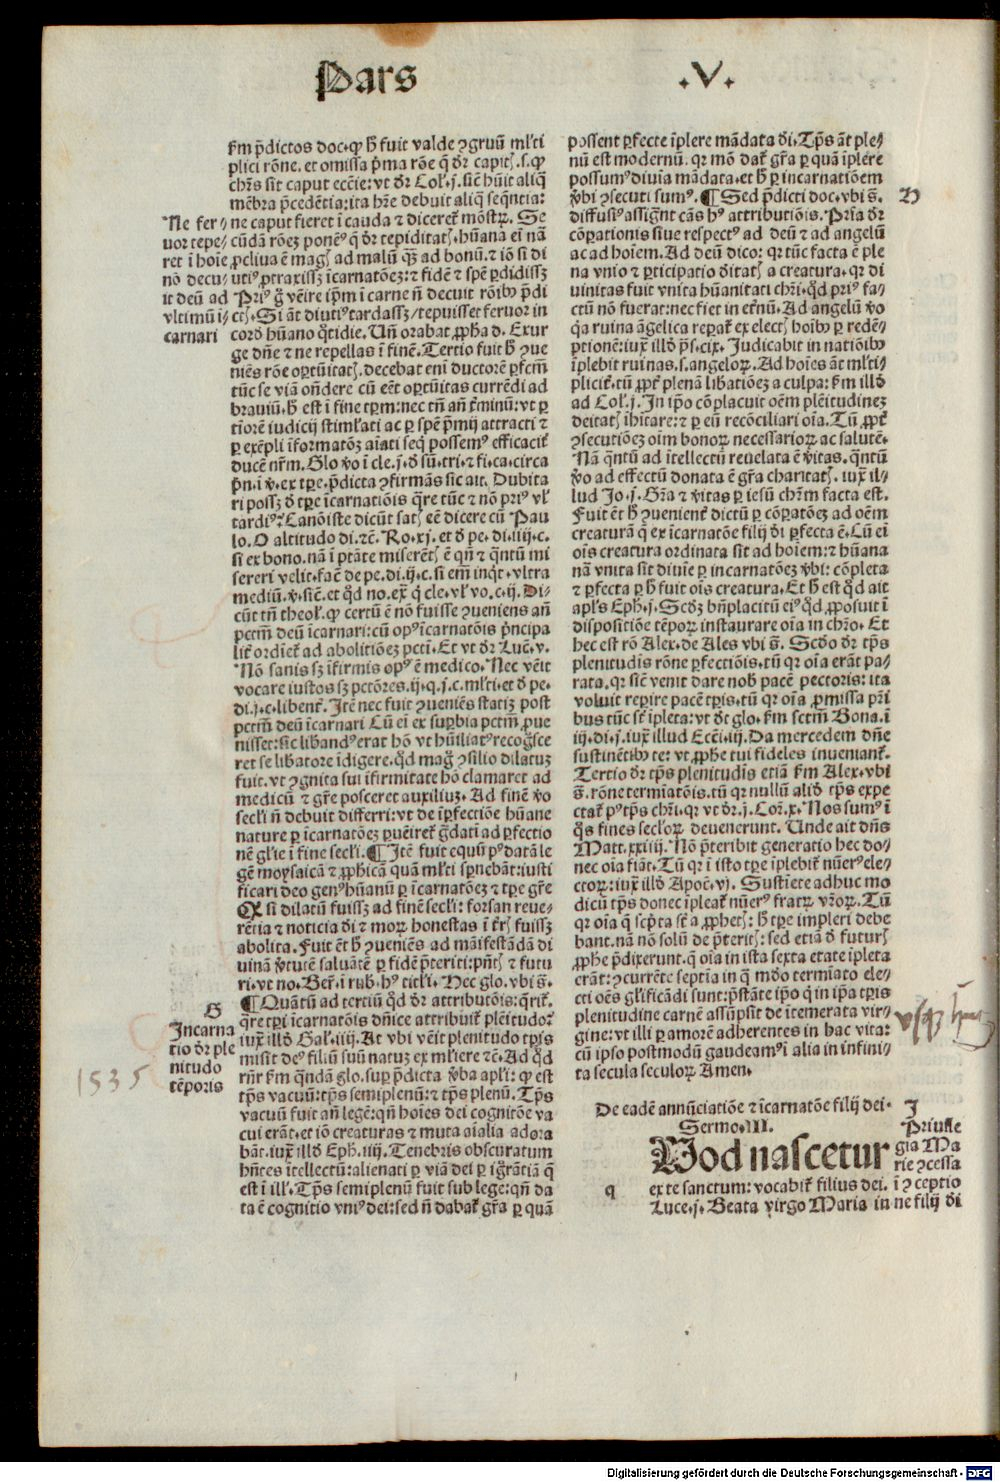 Pars .V.
f̄m p̄dictos doc. ꝙ h̄ fuit valde ꝯgruū ml'ti
plici rōne. et omissa p̄ma rōe q̄ d̄r capitꝭ. s. ꝙ
chr̄s sit caput ecc̄ie: vt d̄r Col'. j. sic̄ hūit aliq̄
mēbra p̄cedētia: ita hr̄e debuit aliq̄ seq̄ntia:
ne caput fieret ī cauda ⁊ diceret̄ mōstrꝝ. Se
cūdā rōeꝫ ponēꝰ q̄ d̄r tepiditatꝭ. hūana ei nā
ꝓcliua ē magꝭ ad malū qꝫ ad bonū. ⁊ iō si di
utiꝰ ꝓtraxissꝫ īcarnatōeꝫ: ⁊ fidē ⁊ spē ꝑdidissꝫ
Priꝰ g̊ vēire ip̄m ī carne n̄ decuit rōibꝰ p̄di
ctꝭ. Si āt diutiꝰ tardassꝫ / tepuisset feruor in
cord̄ hūano q̄tidie. Un̄ orabat ꝓpha d. Exur
ge dn̄e ⁊ ne repellas ī finē. Tertio fuit h̄ ꝯue
niēs rōe oꝑtūitatꝭ. decebat eni ductorē ꝑfcm̄
tūc se viā on̄dere cū eēt oꝑtūitas currēdi ad
brauiū. h̄ est ī fine tꝑm: nec tn̄ an̄ t̄minū: vt ꝑ
tiōrē iudicij stiml'ati ac ꝑ spē p̄mij attracti ⁊
ꝑ exēpli īformatōꝫ aīati seq̄ possemꝰ efficacit̄
ducē nr̄m. Glo v̄o ī cle. j. d̄ sū. tri. ⁊ fi. ca. circa
p̄n. ī v̄. ex tꝑe. p̄dicta ꝯfirmās sic ait. Dubita
ri possꝫ d̄ tꝑe īcarnatiōis q̄re tūc ⁊ nō priꝰ vl'
tardiꝰ? Canōiste dicūt satꝭ eē dicere cū Pau
lo. O altitudo di. ⁊c̄. Ro. xj. et d̄ pe. di. iiij. c.
si ex bono. nā ī ptāte miserētꝭ ē qn̄ ⁊ q̄ntū mi
sereri velit. fac̄ de pe. di. ij. c. si em̄ inq̄t. vltra
mediū. v̄. sic̄. et qd̄ no. ex̄ q̄ cle. vl' vo. c. ij. Di-
cūt tn̄ theol'. ꝙ certū ē nō fuisse ꝯueniens an̄
pctm̄ deū īcarnari: cū opꝰ īcarnatōis p̄ncipa
lit̄ ordīet̄ ad abolitiōeꝫ pcti. Et vt d̄r Luc̄. v.
Nō sanis sꝫ īfirmis opꝰ ē medico. Nec vēit
vocare iustos sꝫ pctōres. ij. q. j. c. ml'ti. et d̄ pe.
di. j. c. libent̄. Itē nec fuit ꝯueniēs statiꝫ post
pctm̄ deū īcarnari Cū ei ex suꝑbia pctm̄ ꝓue
nisset: sic lib̄andꝰ erat hō vt hūiliatꝰ recog̊sce
ret se lib̄atore īdigere. qd̄ mag̊ ꝯsilio dilatuꝫ
fuit. vt ꝯgnita sui īfirmitate hō clamaret ad
medicū ⁊ gr̄e posceret auxiliuꝫ. Ad finē v̄o
secl'i n̄ debuit differri: vt de īꝑfectiōe hūane
nature ꝑ īcarnatōeꝫ ꝓuēiret̄ g̊datī ad ꝑfectio
nē gl'ie ī fine secl'i. ¶ Itē fuit equū pꝰ datā le
gē moysaicā ⁊ ꝓphicā quā ml'ti sꝑnebāt: iusti
ficari deo genꝰ hūanū ꝑ īcarnatōeꝫ ⁊ tꝑe gr̄e
Qꝙ si dilatū fuissꝫ ad finē secl'i: forsan reue-
rētia ⁊ noticia d̄i ⁊ moꝝ honestas ī t̄rꝭ fuissꝫ
abolita. Fuit ēt h̄ ꝯueniēs ad māifestādā di
uinā v̄tutē saluātē ꝑ fidē p̄teriti: pn̄tꝭ ⁊ futu
ri. vt no. Ber̄. ī rub. hꝰ titl'i. Hec glo. vbi s̄.
¶ Quātū ad tertiū qd̄ d̄r attributōis: q̄rit̄.
q̄re tꝑi īcarnatōis dn̄ice attribuit̄ plēitudo?
iux̄ illd̄ Gal'. iiij. At vbi vēit plenitudo tꝑis
misit deꝰ filiū suū natuꝫ ex ml'iere ⁊c̄. Ad qd̄
rn̄r f̄m q̄ndā glo. suꝑ p̄dicta v̄ba apl'i: ꝙ est
tp̄s vacuū: tp̄s semiplenū: ⁊ tp̄s plenū. Tp̄s
vacuū fuit an̄ legē: qn̄ hoīes dei cognitōe va
cui erāt. et iō creaturas ⁊ muta aīalia adora
bāt. iux̄ illd̄ Eph. iiij. Tenebris obscuratum
hn̄tes ītellectū: alienati ꝑ viā dei ꝑ ig̊rātiā q̄
est ī ill'. Tp̄s semiplenū fuit sub lege: qn̄ da
ta ē cognitio vniꝰ dei: sed n̄ dabat̄ gr̄a ꝑ quā
Ne fer-
uor tepe-
ret ī hoīe
nō decu-
it deū ad
vltimū ī-
carnari
G
Incarna
tio d̄r ple
nitudo
tēporis
1535
possent ꝑfecte īplere mādata d̄i. Tp̄s āt ple-
nū est modernū. qr mō dat̄ gr̄a ꝑ quā īplere
possumꝰ diuīa mādata. et h̄ ꝑ incarnatiōem
v̄bi ꝯsecuti sumꝰ. ¶ Sed p̄dicti doc. vbi s̄.
diffusiꝰ assignt̄ cās hꝰ attributiōis. Pr̄ia d̄r
cōꝑationis siue respectꝰ ad deū ⁊ ad angelū
ac ad hoīem. Ad deū dico: qr tūc facta ē ple
na vnio ⁊ ꝑticipatio d̄itatꝭ a creatura. qr di
uinitas fuit vnita hūanitati chr̄i. qd̄ priꝰ fa-
ctū nō fuerat: nec fiet in et̄nū. Ad angelū v̊o
qꝛ ruina āgelica reꝑat̄ ex electꝭ hoībꝰ ꝑ redē-
ptionē: iux̄ illd̄ ps̄. cix. Judicabit in natiōibꝰ
īplebit ruinas. s. angeloꝝ. Ad hoīes āt ml'ti-
plicit̄. tū ꝓpt̄ plenā lib̄atiōeꝫ a culpa: f̄m illd̄
ad Col'. j. In ip̄o cōplacuit oēm plēitudineꝫ
deitatꝭ īhītare: ⁊ ꝑ eū recōciliari oīa. Tū ꝓpt̄
ꝯsecutiōeꝫ oīm bonoꝝ necessarioꝝ ac salutē.
Nā q̄ntū ad ītellectū reuelata ē v̄itas. q̄ntū
v̄o ad effectū donata ē gr̄a charitatꝭ. iux̄ il-
lud Jo. j. Gr̄a ⁊ v̄itas ꝑ iesū chr̄m facta est.
Fuit ēt h̄ ꝯuenient̄ dictū ꝑ cōꝑatōeꝫ ad oēm
creaturā q̄ ex īcarnatōe filij d̄i ꝑfecta ē. Cū ei
oīs creatura ordinata sit ad hoīem: ⁊ hūana
nā vnita sit diuīe ꝑ incarnatōeꝫ v̄bi: cōpleta
⁊ ꝑfecta ꝑ h̄ fuit oīs creatura. Et h̄ est qd̄ ait
apl's Eph. j. Scd̄ꝫ bn̄placitū eiꝰ qd̄ ꝓposuit ī
dispositiōe tēpoꝝ instaurare oīa in chr̄o. Et
hec est rō Alex. de Ales vbi s̄. Scd̄o d̄r tp̄s
plenitudīs rōne ꝑfectiōis. tū qr oīa erāt pa-
rata. qr sic̄ venit dare nob̄ pacē pectoris: ita
voluit reꝑire pacē tꝑis. tū qr oīa ꝓmissa pr̄i
bus tūc st̄ īpleta: vt d̄t glo. f̄m sctm̄ Bona. ī
iij. di. j. iux̄ illud Ecc̄i. iij. Da mercedem dn̄e
sustinētibꝰ te: vt ꝓphe tui fideles inueniant̄.
Tertio d̄r tp̄s plenitudīs etiā f̄m Alex. vbi
s̄. rōne termīatōis. tū qr nullū aliđ tp̄s expe
ctat̄ pꝰ tp̄s chr̄i. qr vt d̄r. j. Cor̄. x. Nos sumꝰ ī
q̊s fines secl'oꝝ deuenerunt. Unde ait dn̄s
Matt. xxiiij. Nō p̄teribit generatio hec do-
nec oīa fiāt. Tū qr ī isto tꝑe īplebit̄ nūerꝰ ele-
ctoꝝ: iux̄ illd̄ Apoc̄. vj. Sustīete adhuc mo
dicū tp̄s donec īpleat̄ nūerꝰ fratꝝ vr̄oꝝ. Tū
qr oīa q̄ scp̄ta st̄ a ꝓphetꝭ: h̄ tꝑe impleri debe
bant. nā nō solū de p̄teritꝭ: sed etiā d̄ futurꝭ
ꝓphe p̄dixerunt. q̄ oīa in ista sexta etate īpleta
erāt: ꝯcurrēte septīa in q̄ mōdo termīato ele-
cti oēs gl'ificādi sunt: p̄stāte ip̄o q̄ in ip̄a tꝑis
plenitudine carnē assūpsit de ītemerata vir-
gine: vt illi ꝑ amorē adherentes in hac vita:
cū ipso postmodū gaudeamꝰ ī alia in infini-
ta secula seculoꝝ Amen.
H
De eadē annūciatiōe ⁊ īcarnatōe filij dei.
Sermo. III.
Quod nascetur
q
ex te sanctum: vocabit̄ filius dei.
Luce. j. Beata virgo Maria in
I
Priuile
gia Ma
rie ꝯcessa
ī ꝯceptio
ne filij d̄i
Digitalisierung gefördert durch die Deutsche Forschungsgemeinschaft - DFG